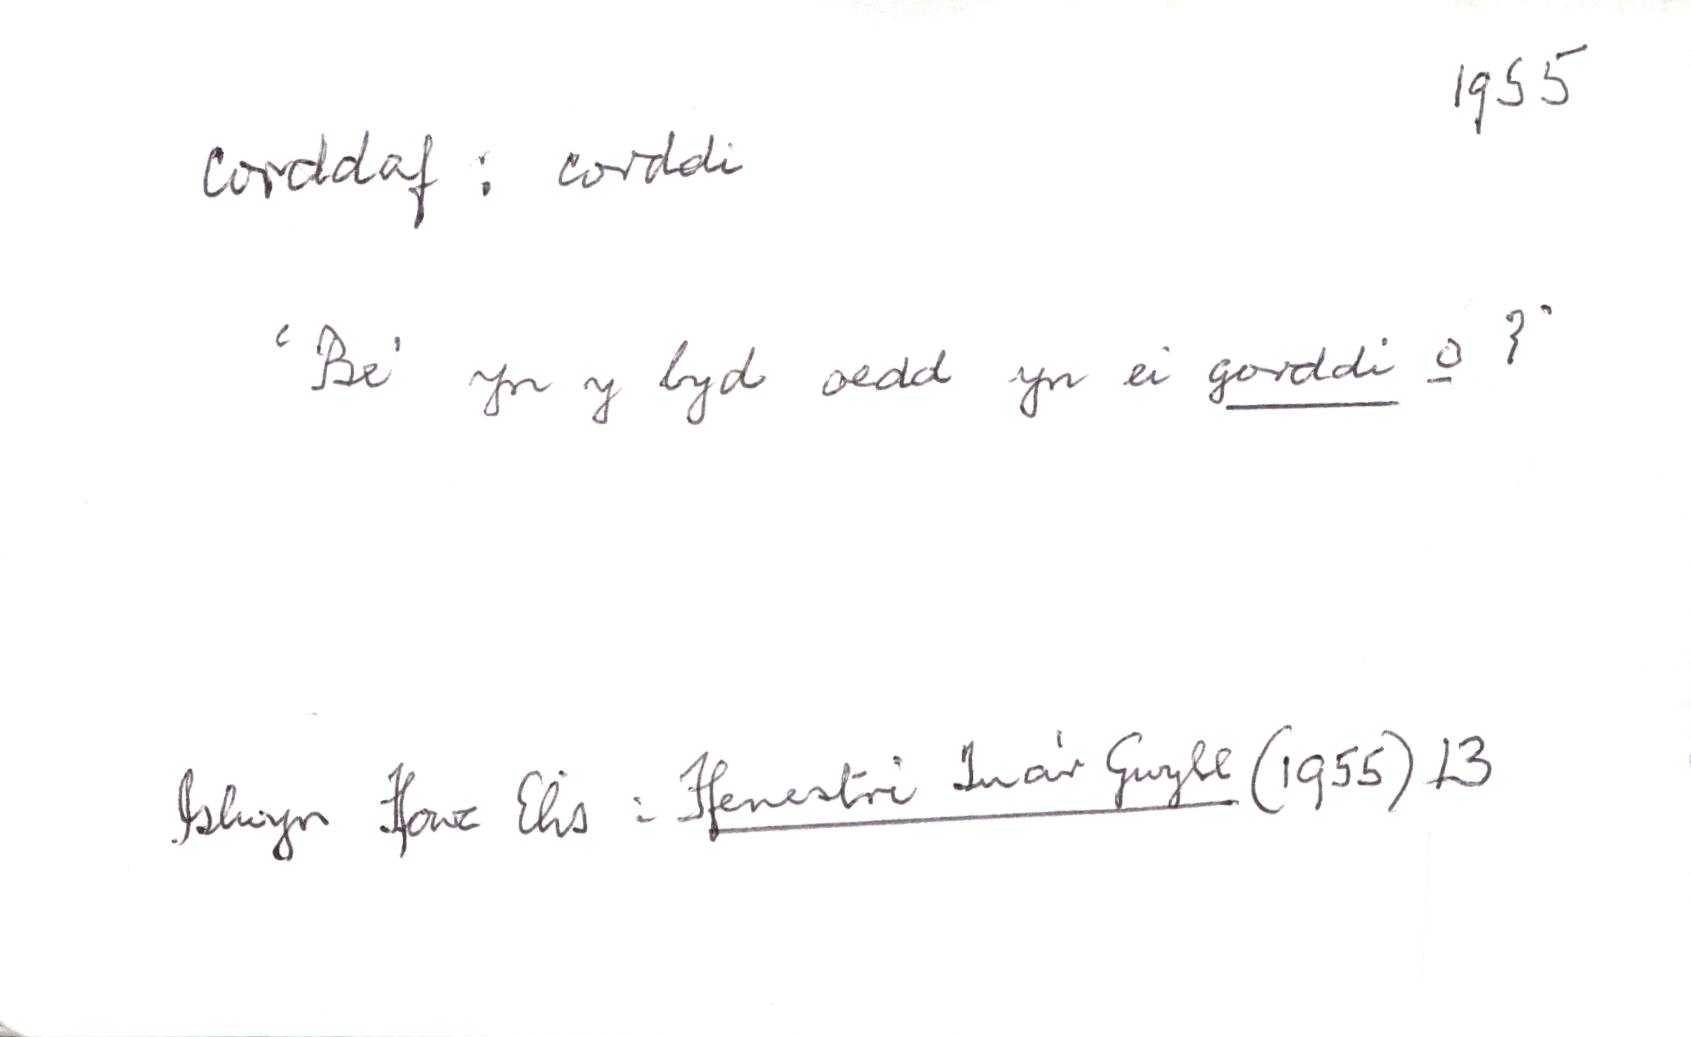 1955
corddaf : corddi
"Be' yn y byd oedd yn ei gorddi o?"
Islwyn Ffowc Elis : Ffenestri Tua'r Gwyll (1955) 13